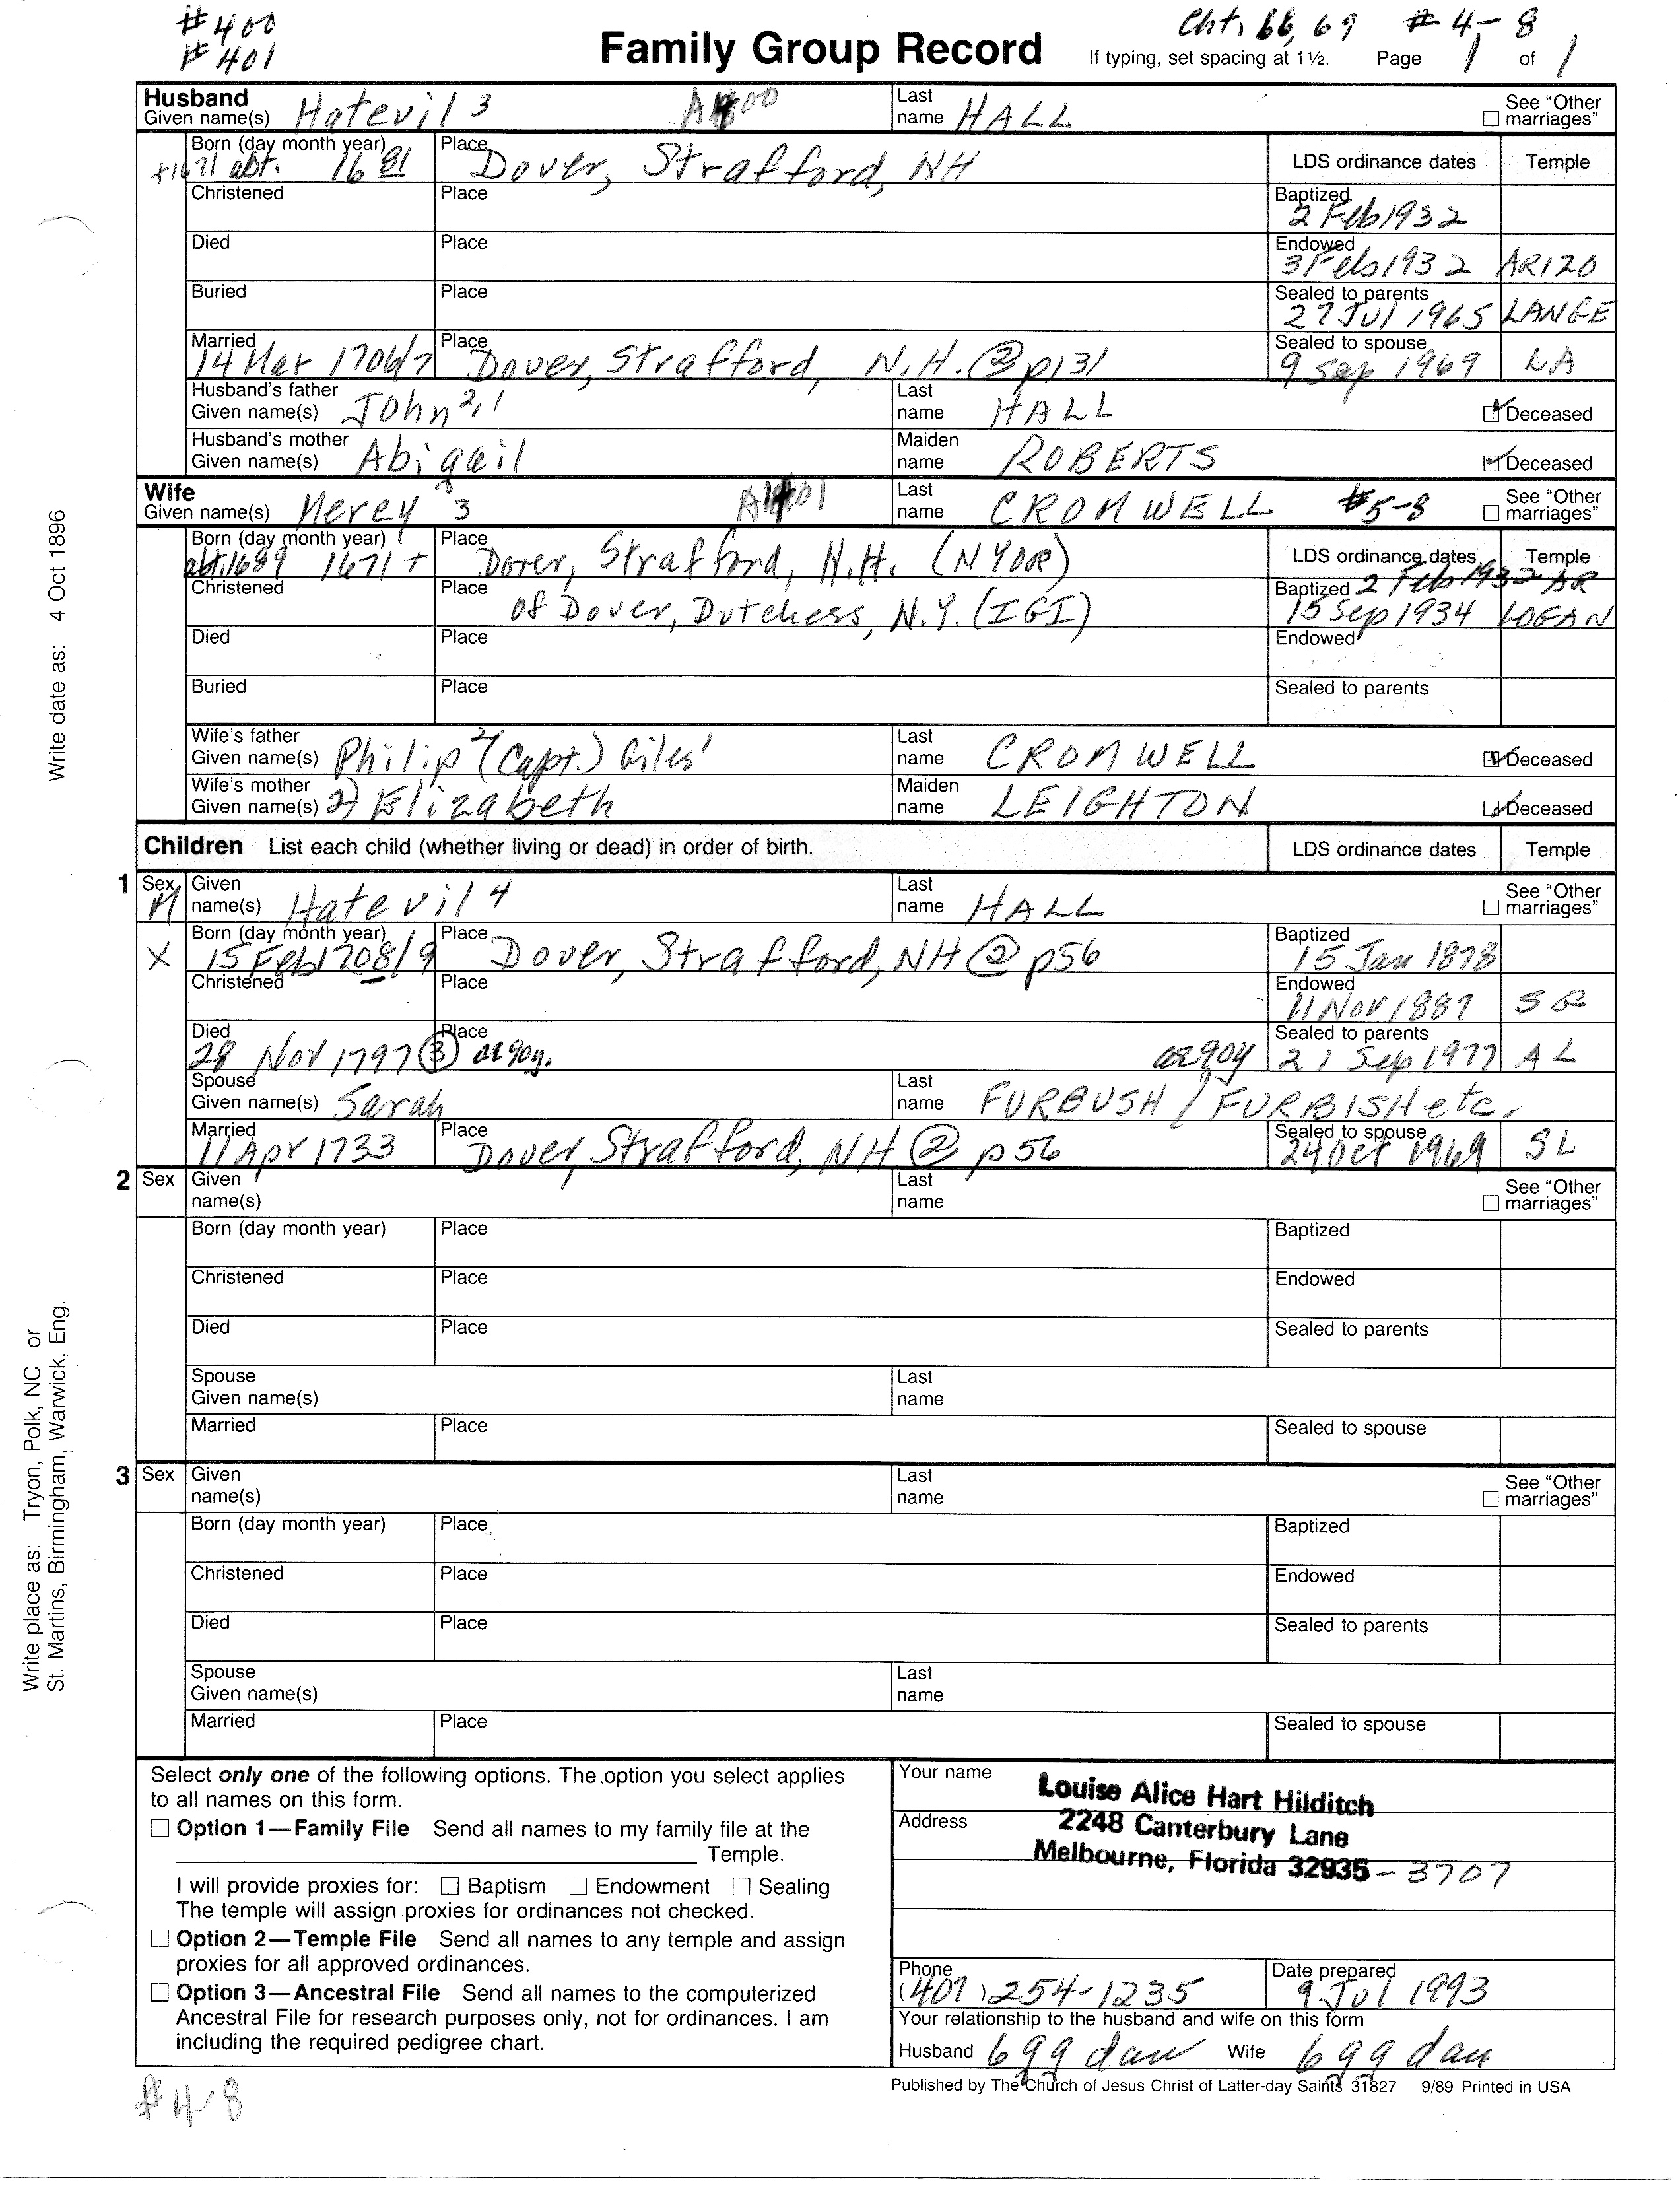 #400
#401
Cht. 66, 69 #4-8
Family Group Record
If typing, set spacing at 1½. Page 1 of 1
Husband
Given name(s) Hatevil 3
Last name HALL
See "Other marriages"
Born (day month year) +1671 abt. 1681
Place Dover, Strafford, NH
LDS ordinance dates Temple
Christened Place
Baptized 2 Feb 1932
Died Place
Endowed 3 Feb 1932 ARIZO
Buried Place
Sealed to parents 27 Jul 1965 LANGE
Married 14 Mar 1706/7
Place Dover, Strafford, N.H. @ p131
Sealed to spouse 9 Sep 1969 LA
Husband's father
Given name(s) John 2,1
Last name HALL
Deceased
Husband's mother
Given name(s) Abigail
Maiden name ROBERTS
Deceased
Wife
Given name(s) Mercy 3
Last name CROMWELL #5-8
See "Other marriages"
Born (day month year) abt. 1689 1671+
Place Dover, Strafford, N.H. (NYOR)
LDS ordinance dates Temple
Christened
Place of Dover, Dutchess, N.Y. (IGI)
Baptized 2 Feb 1932 AR
15 Sep 1934 LOGAN
Died Place
Endowed
Buried Place
Sealed to parents
Wife's father
Given name(s) Philip 2 (Capt.) Giles 1
Last name CROMWELL
Deceased
Wife's mother
Given name(s) 2) Elizabeth
Maiden name LEIGHTON
Deceased
Children List each child (whether living or dead) in order of birth.
LDS ordinance dates Temple
1 Sex M
Given name(s) Hatevil 4
Last name HALL
See "Other marriages"
X
Born (day month year) 15 Feb 1708/9
Place Dover, Strafford, NH @ p56
Baptized 15 Jan 1878
Christened Place
Endowed 11 Nov 1887 SG
Died 28 Nov 1797 3
Place
Sealed to parents 21 Sep 1977 AL
Spouse
Given name(s) Sarah
Last name FURBUSH / FURBISH etc.
Married 11 Apr 1733
Place Dover, Strafford, NH @ p56
Sealed to spouse 24 Oct 1969 SL
2 Sex Given name(s)
Last name
See "Other marriages"
Born (day month year) Place Baptized
Christened Place Endowed
Died Place Sealed to parents
Spouse
Given name(s)
Last name
Married Place Sealed to spouse
3 Sex Given name(s)
Last name
See "Other marriages"
Born (day month year) Place Baptized
Christened Place Endowed
Died Place Sealed to parents
Spouse
Given name(s)
Last name
Married Place Sealed to spouse
Select only one of the following options. The option you select applies
to all names on this form.
Option 1—Family File Send all names to my family file at the
Temple.
I will provide proxies for: Baptism Endowment Sealing
The temple will assign proxies for ordinances not checked.
Option 2—Temple File Send all names to any temple and assign
proxies for all approved ordinances.
Option 3—Ancestral File Send all names to the computerized
Ancestral File for research purposes only, not for ordinances. I am
including the required pedigree chart.
Your name Louise Alice Hart Hilditch
Address 2248 Canterbury Lane
Melbourne, Florida 32935-3707
Phone (407) 254-1235
Date prepared 9 Jul 1993
Your relationship to the husband and wife on this form
Husband 6 gg dau Wife 6 gg dau
Published by The Church of Jesus Christ of Latter-day Saints 31827 9/89 Printed in USA
#4-8
Write date as: 4 Oct 1896
Write place as: Tryon, Polk, NC or
St. Martins, Birmingham, Warwick, Eng.